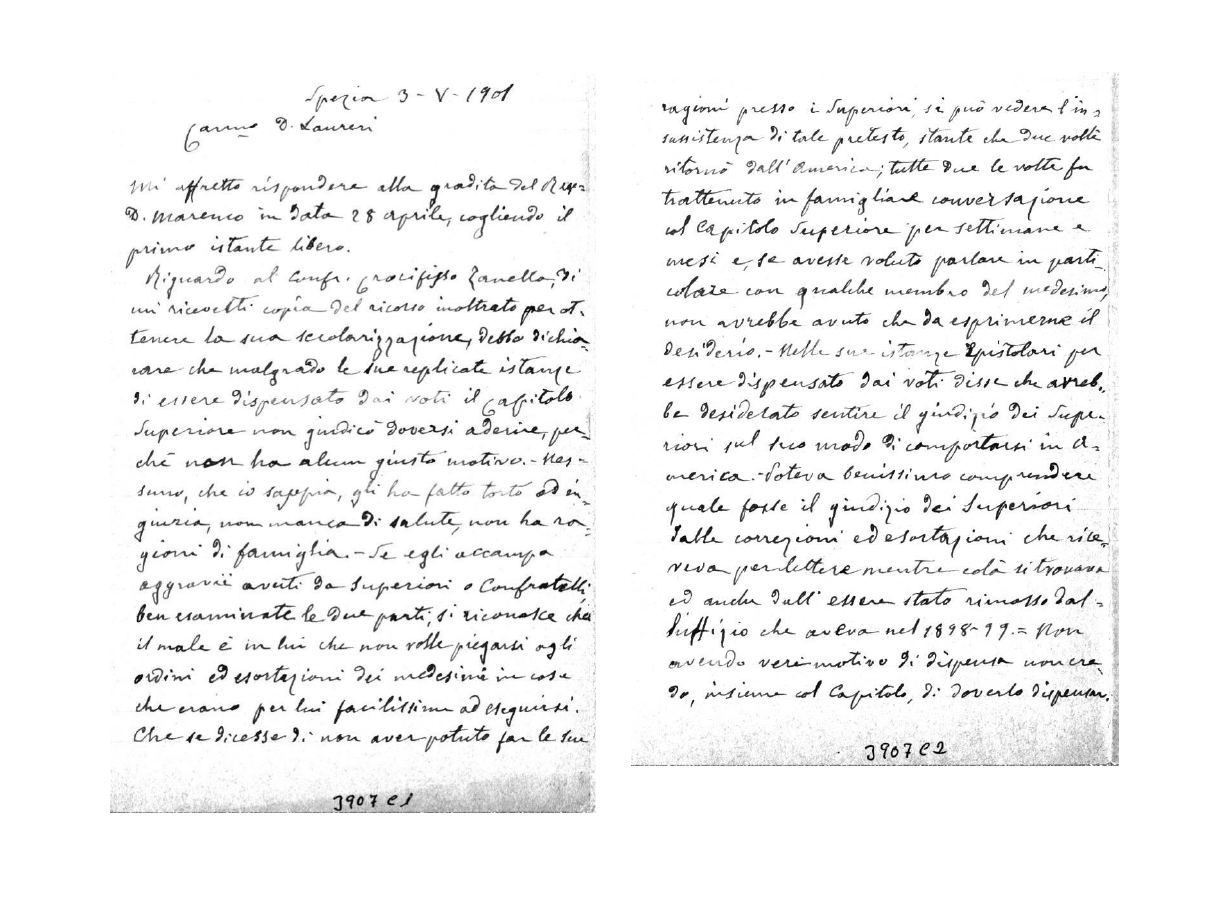 Spezia 3-V-1901
Carmo D. Laureri
Mi affretto rispondere alla gradita del Rev=
D. Marenco in data 28 aprile, cogliendo il
primo istante libero.
Riguardo al Confr. Crocifisso Zanella, di
cui ricevetti copia del ricorso inoltrato per ot-
tenere la sua secolarizzazione, debbo dichia-
rare che malgrado le sue replicate istanze
di essere dispensato dai voti il Capitolo
Superiore non giudicò doversi aderire, per-
chè non ha alcun giusto motivo.- Nes-
suno, che io sappia, gli ha fatto torto od in-
giuria, non manca di salute, non ha ra-
gioni di famiglia.- Se egli accampa
aggravii avuti da Superiori o Confratelli,
ben esaminate le due parti, si riconosce che
il male è in lui che non volle piegarsi agli
ordini ed esortazioni dei medesimi in cose
che erano per lui facilissime ad eseguirsi.
Che se dicesse di non aver potuto far le sue
3907 C1
ragioni presso i Superiori, si può vedere l'in=
sussistenza di tale pretesto, stante che due volte
ritornò dall'America; tutte due le volte fu
trattenuto in famigliare conversazione
col Capitolo Superiore per settimane e
mesi e, se avesse voluto parlare in parti-
colare con qualche membro del medesimo,
non avrebbe avuto che da esprimerne il
desiderio.- Nelle sue istanze Epistolari per
essere dispensato dai voti disse che avreb-
be desiderato sentire il giudizio dei Supe-
riori sul suo modo di comportarsi in A-
merica.- Poteva benissimo comprendere
quale fosse il giudizio dei Superiori
dalle correzioni ed esortazioni che rice-
veva per lettere mentre colà si trovava
ed anche dall'essere stato rimosso dal-
l'uffizio che aveva nel 1898-99.= Non
avendo veri motivo di dispensa non cre-
do, insieme col Capitolo, di doverlo dispensar.
3907 C2